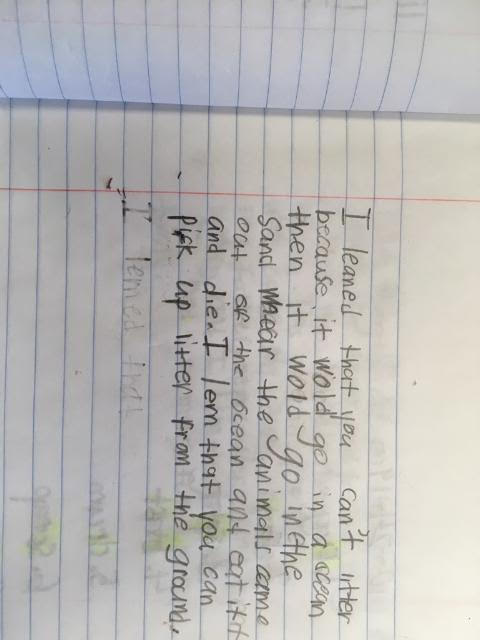 I leaned that you can't litter
because it wold go in a ocean
then it wold go in the
Sand whear the animals came
out of the ocean and eat it
and die. I lern that you can
pick up litter from the ground.
I lerned that